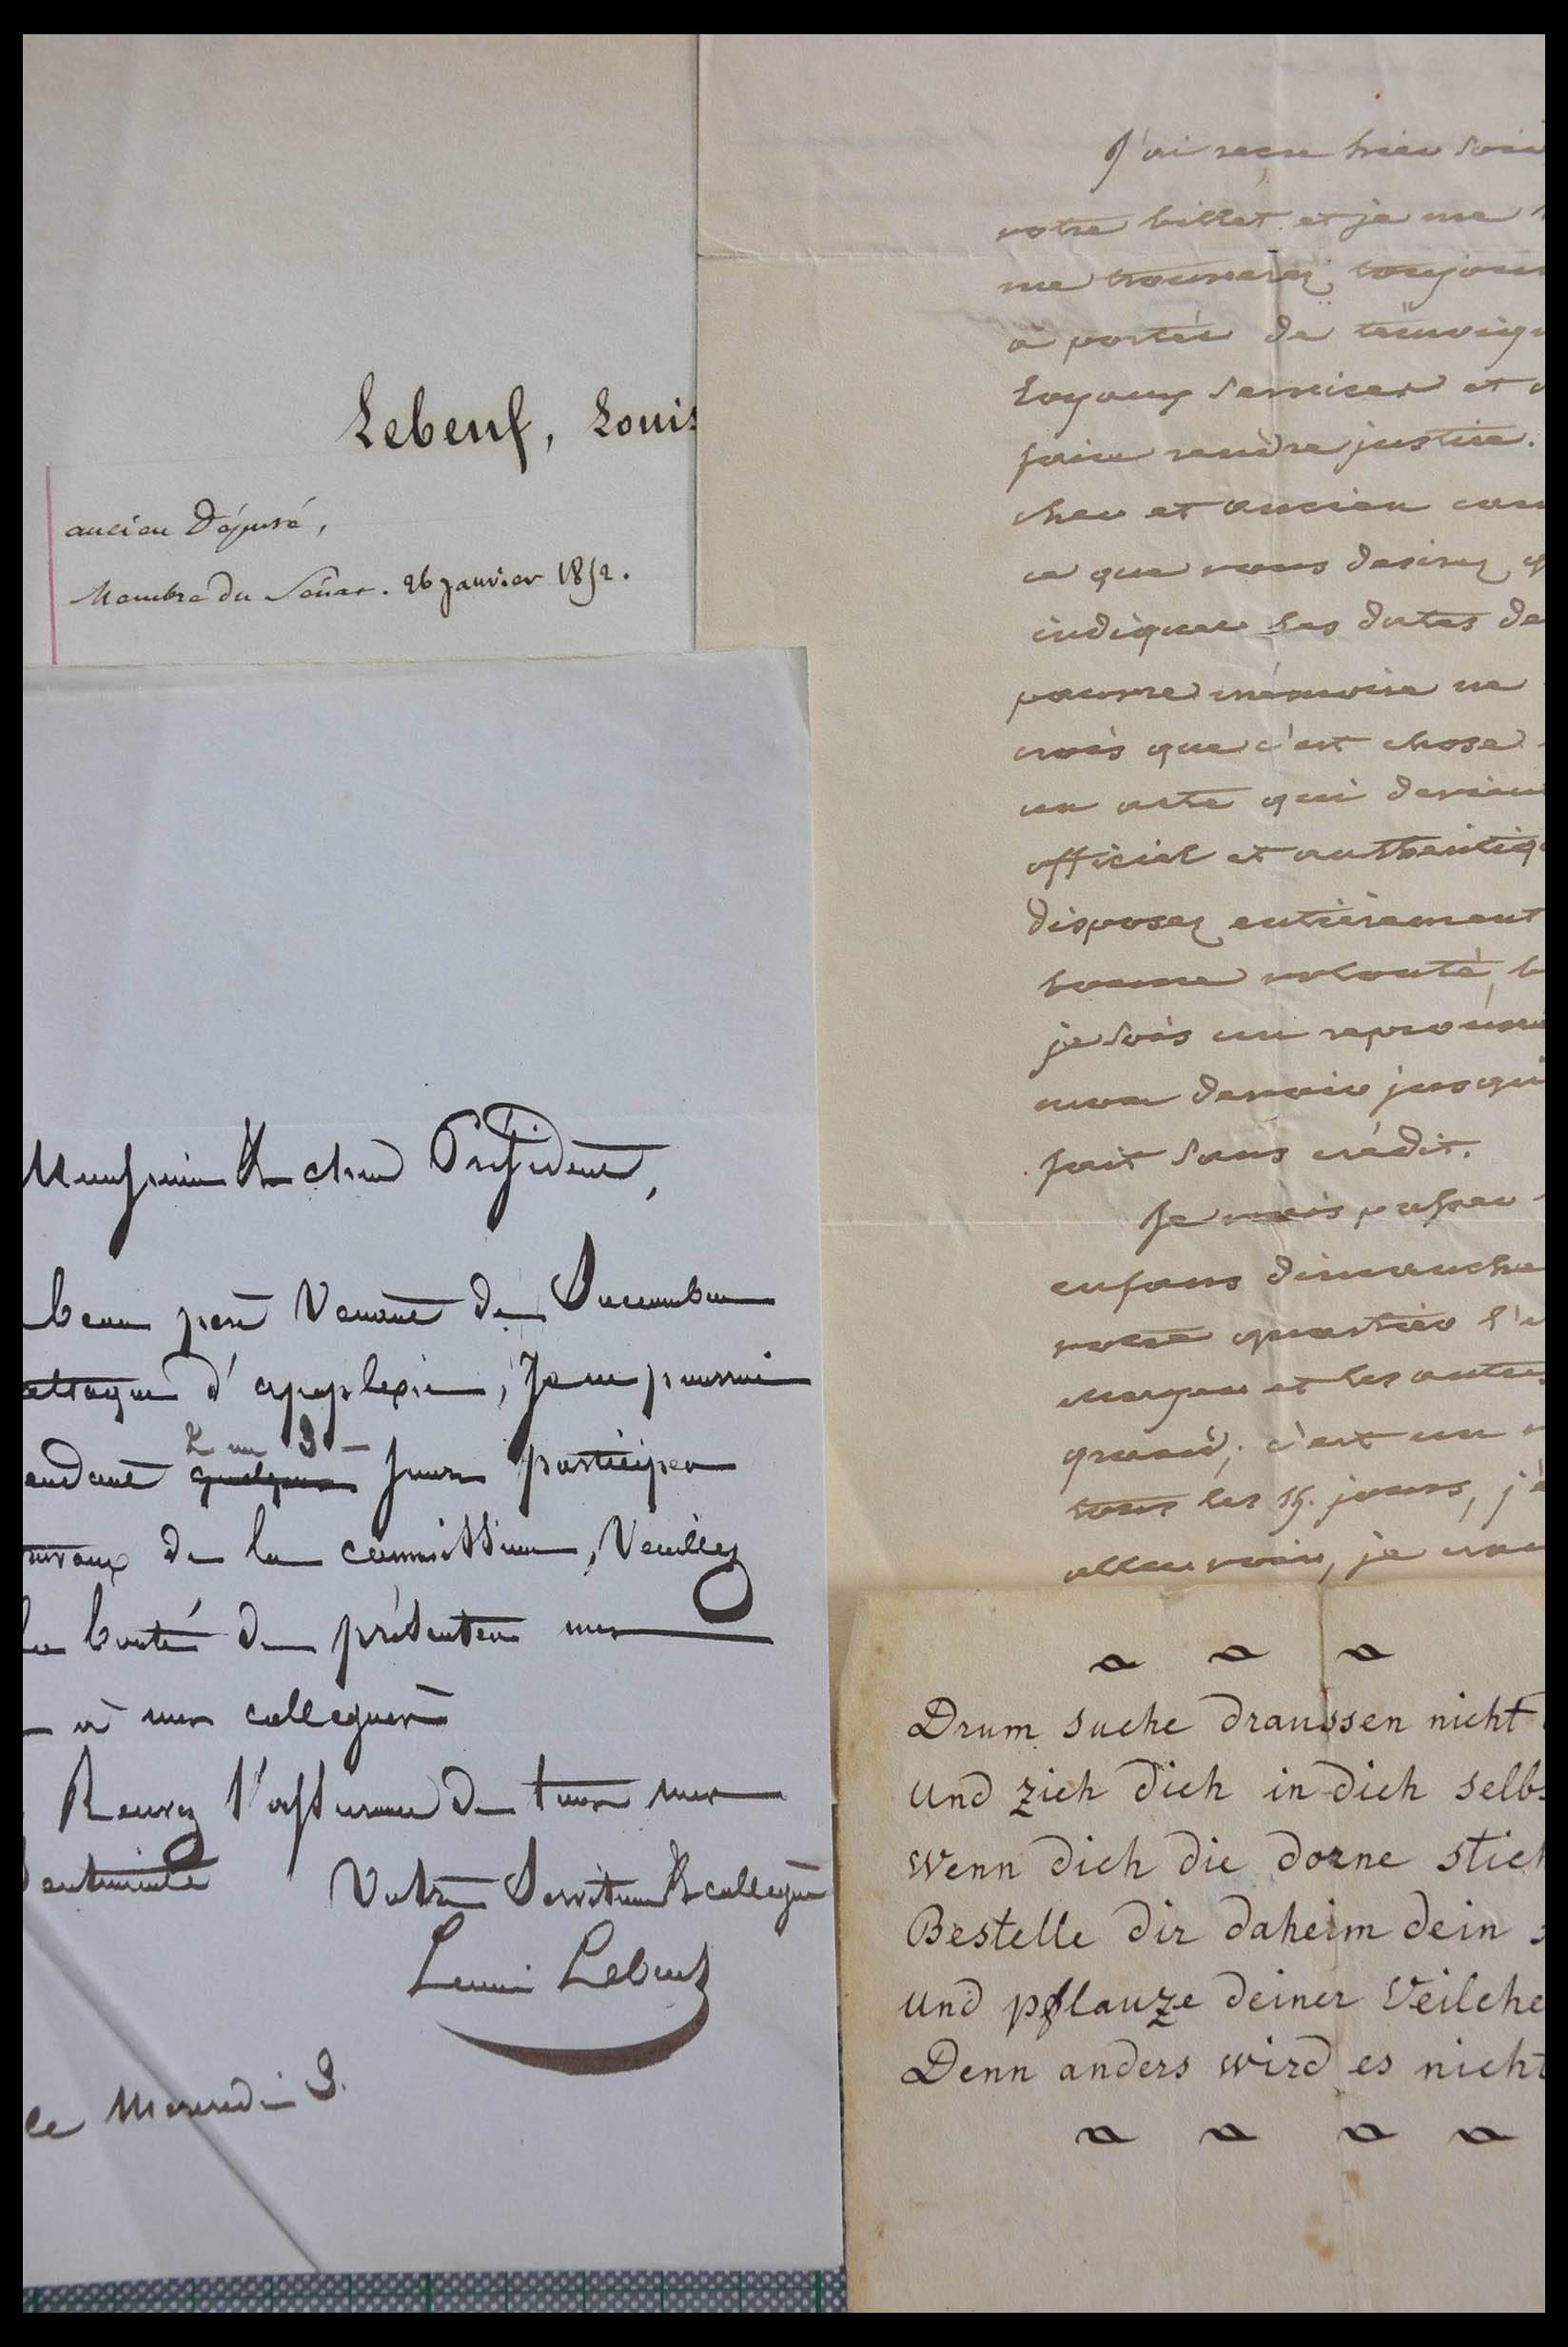 Lebeuf, Louis
ancien Député,
Membre du Sénat. 26 Janvier 1852.
J'ai reçu hier soir
votre billet et je me
me trouverez toujours
a portée de témoign
loyaux services et
faire rendre justice.
cher et ancien cam
ce que vous desirez
indiquer les dates de
pauvre mémoire ne
crois que c'est chose
un acte qui devien
officiel et authentiq
disposez entièrement
bonne volonté, b
je sois un
mon devoir jusqu
fait sans crédit.
Je vais passer
enfans dimanche
votre quartier l'
et les autres
grand; c'est un
tous les 15. jours, j'
aller voir, je
Monsieur & cher Président,
beau pere Venant de Succomber
attaque d'apoplexie, Je ne pourrai
endant 2 ou 3 quelques Jours participer
avaux de la commission, Veuillez
la bonté de présenter mes
à mes collegues
Recevez l'assurance de tous mes
Sentiments Votre Serviteur & collegue
Louis Lebeuf
ce Mercredi 3.
Drum suche draussen nicht
Und zieh dich in dich selbs
Wenn dich die dorne stich
Bestelle dir daheim dein
Und pflanze deiner Veilche
Denn anders wird es nicht